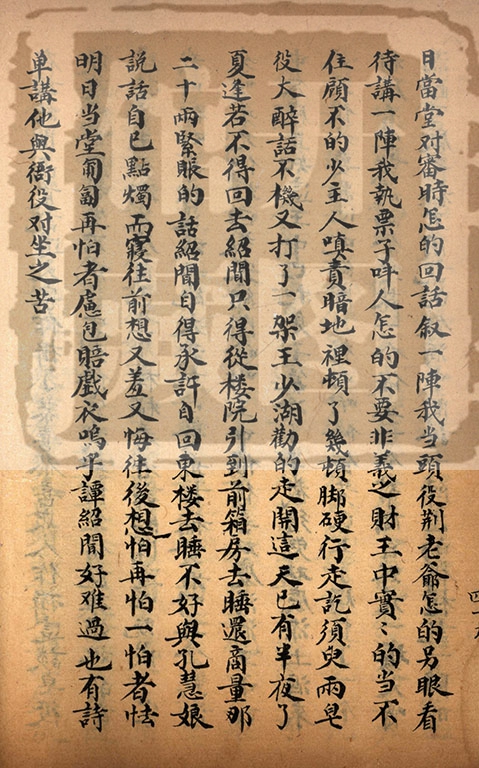 日當堂对審時怎的回話叙一陣我当頭役荆老爺怎的另眼看
待講一陣我執票子呌人怎的不要非義之財王中實〻的当不
住顧不的少主人嗔責暗地裡頓了幾頓脚硬行走訖須臾兩皂
役大醉話不機又打了一架王少湖勸的走開這天已有半夜了
夏逢若不得回去紹聞只得從楼院引到前箱房去睡還商量那
二十兩緊賬的話紹聞自得承許自回東楼去睡不好與孔慧娘
説話自已點燭而寢往前想又羞又悔往後想怕再怕一怕者怯
明日当堂匍匐再怕者慮包賠戲衣嗚乎譚紹聞好难過也有詩
单講他與衙役对坐之苦